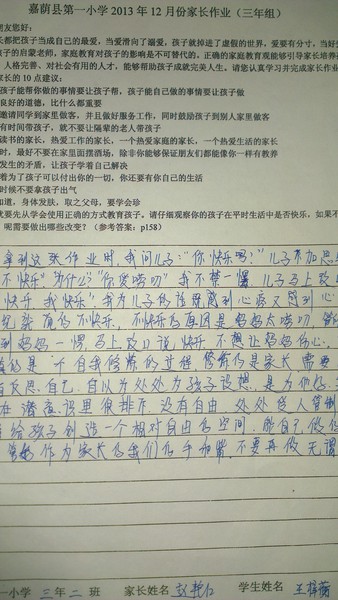 嘉荫县第一小学 2013 年 12 月份家长作业（三年组）
朋友您好：
长都把孩子当成自己的最爱，当爱滑向了溺爱，孩子就掉进了虚假的世界，爱要有分寸，当好
孩子的启蒙老师，家庭教育对孩子的影响是不可替代的。正确的家庭教育观能够引导家长培养
、人格完善、对社会有用的人才，能够帮助孩子成就完美人生。请您认真学习并完成家长作业
家长的 10 点建议：
孩子能帮你做的事情要让孩子帮，孩子能自己做的事情要让孩子做
良好的道德，比什么都重要
邀请同学到家里做客，并且做好服务工作，同时鼓励孩子到别人家里做客
有时间带孩子，就不要让隔辈的老人带孩子
读书的家长，热爱工作的家长，一个热爱家庭的家长，一个热爱生活的家长
时，最好不要在家里面摆酒场，除非你能够保证朋友们都能像你一样有教养
发生的矛盾，让孩子学着自己解决
着为了孩子可以付出你的一切，你还要有你自己的生活
时候不要拿孩子出气
知道，身体发肤，取之父母，要学会珍
就要先从学会使用正确的方式教育孩子，请仔细观察你的孩子在平时生活中是否快乐，如果不
呢需要做出哪些改变？（参考答案：p158）
拿到这张作业时，我问儿子："你快乐吗？"儿子不加思
不快乐"为什么？"你爱唠叨"我不禁一愣，儿子马上改口
快乐，我快乐"我为儿子的
不快乐，不快乐的原因是妈妈太唠叨，
到妈妈一愣，马上改口说，快乐，不想让妈妈伤心，
是一个自我修炼的过程，修炼的是家长，需要
反思自己，自以为处处为孩子设想，是为他好，
在潜意识里很排斥，没有自由，处处受人管制
给孩子创造一个相对自由的空间，
作为家长的我们 不要再做无谓
一小学 三年二班 家长姓名 赵艳红 学生姓名 王梓